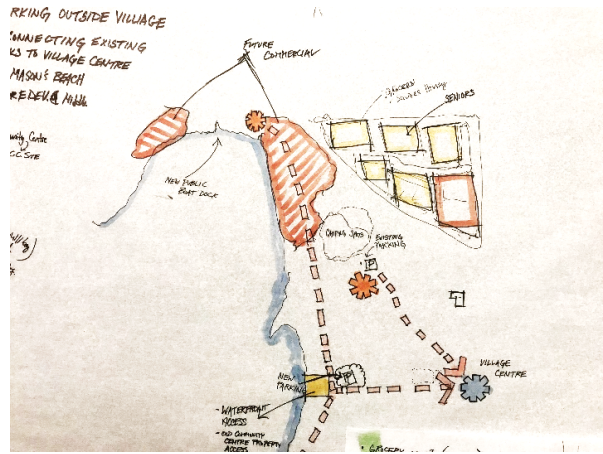 RKING OUTSIDE VILLAGE
ONNECTING EXISTING
KS TO VILLAGE CENTRE
MASON'S BEACH
REDEV. @ Middle
Centre
SITE
FUTURE
COMMERCIAL
SENIORS
NEW PUBLIC
BOAT DOCK
EXISTING
PARKING
P
NEW
PARKING
VILLAGE
CENTRE
- WATERFRONT
ACCESS
- OLD COMMUNITY
CENTRE PROPERTY
ACCESS
• GROCERY